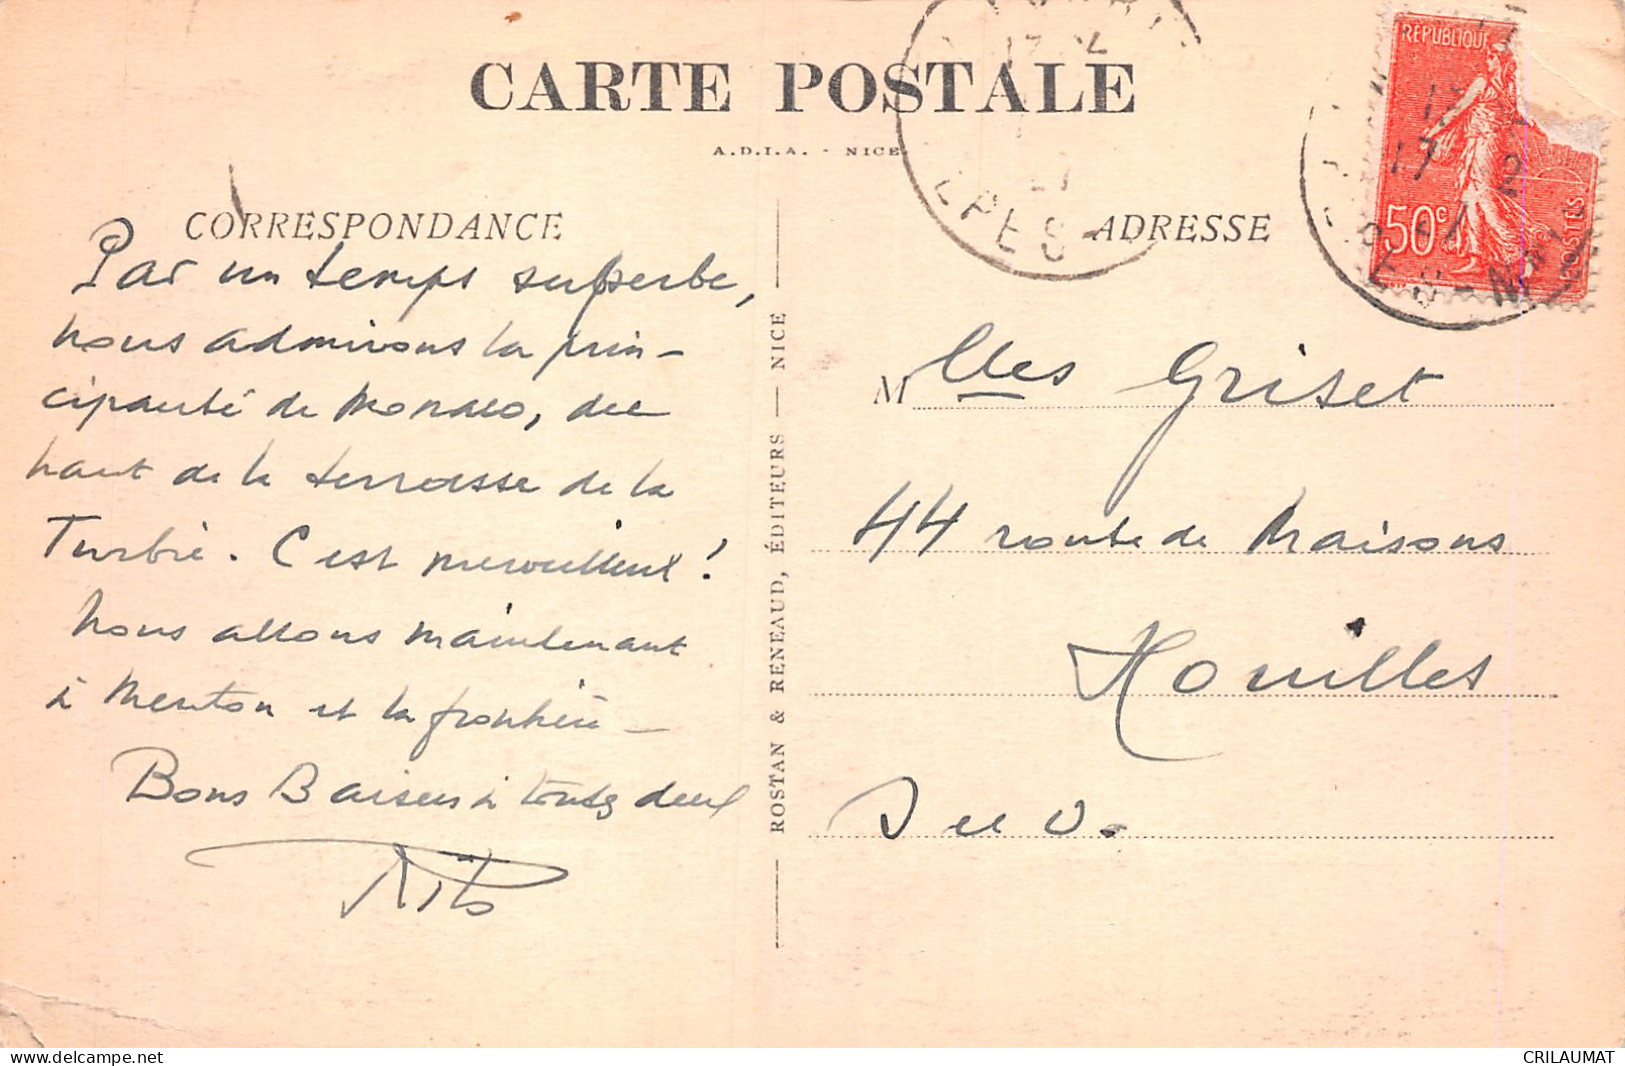 CARTE POSTALE
A.D.I.A. - NICE
CORRESPONDANCE
ADRESSE
Par un temps superbe,
nous admirons la prin-
cipauté de Monaco, du
haut de la terrasse de la
Turbie. C'est merveilleux!
Nous allons maintenant
à Menton et la frontière –
Bons Baisers à toutes deux
ROSTAN & RENEAUD, ÉDITEURS — NICE
Mlles Griset
44 route de Maisons
Houilles
S et O.
RÉPUBLIQUE
50c
POSTES
17 2
delcampe.net
CRILAUMAT